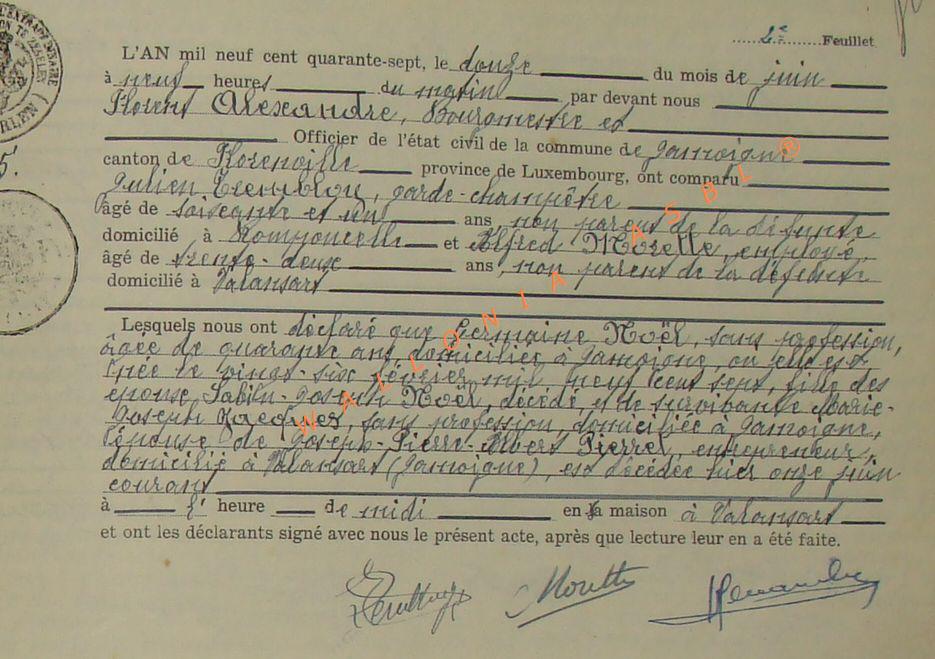 2e Feuillet
L'AN mil neuf cent quarante-sept, le douze du mois de juin
à neuf heures du matin par devant nous
Florent Alexandre, Bourgmestre et
Officier de l'état civil de la commune de Jamoigne
canton de Florenville province de Luxembourg, ont comparu
Julien garde-champêtre
âgé de soixante et un ans non parent de la défunte
domicilié à Romponcelle et Alfred Morette, employé,
âgé de trente-deux ans, non parent de la défunte
domicilié à Valansart
Lesquels nous ont déclaré que Germaine Noël, sans profession,
âgée de quarante ans, domiciliée à Jamoigne, où elle est
née le vingt-six février mil neuf cent sept, fille des
époux Sabin-Joseph Noël, décédé, et de survivante Marie-
Joseph Jacques, sans profession, domiciliée à Jamoigne,
épouse de Joseph-Pierre-Albert Pierret, entrepreneur,
domicilié à Valansart (Jamoigne), est décédée hier onze juin
courant
à l' heure de midi en la maison à Valansart
et ont les déclarants signé avec nous le présent acte, après que lecture leur en a été faite.
Morette
WALLONIA ASBL ®
5.